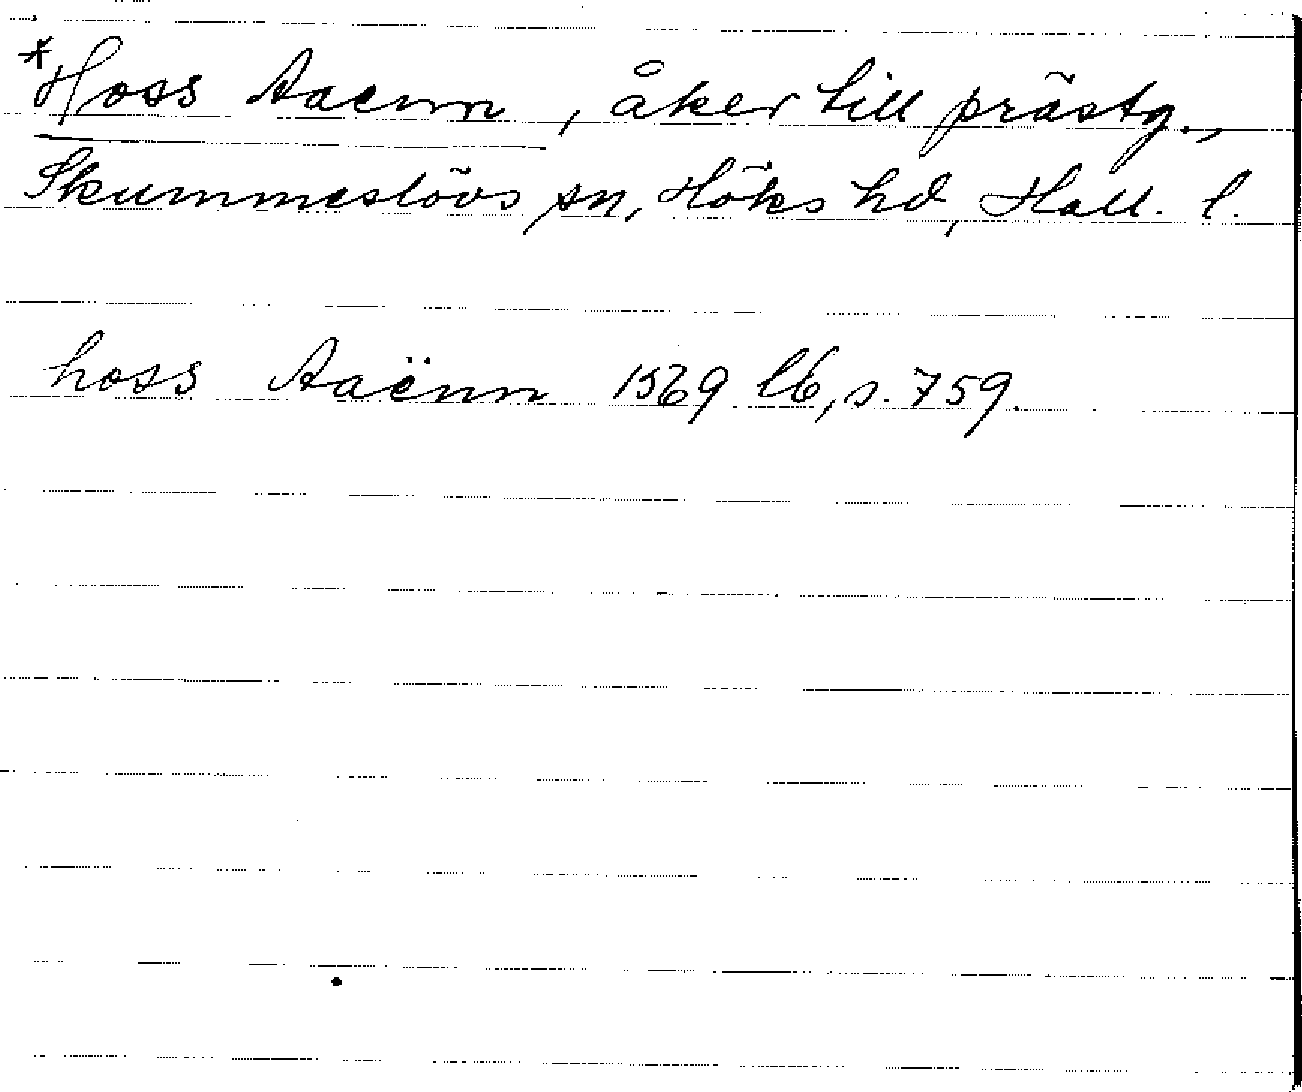 *Hoss Aaenn, åker till prästg.,
Skummeslövs sn, Höks hd, Hall. l.
hoss Aaënn 1569 lb, s. 759.